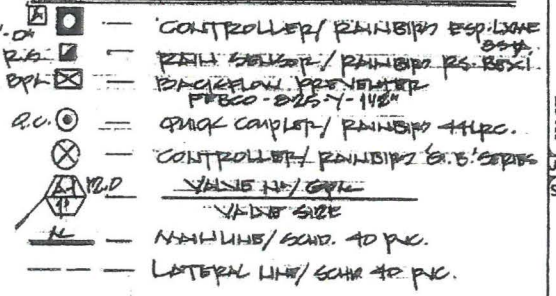 A — CONTROLLER/ RAINBIRD ESP-LXME
R.S. — RAIN SENSOR / RAINBIRD RS-
BPU — BACKFLOW PREVENTER
FEBCO - 825-Y-
Q.C. — QUICK COUPLER/ RAINBIRD 44LRC.
— CONTROLLER/ RAINBIRD SERIES
A-1 12.0 VALVE Nº/ GPM
1" VALVE SIZE
— MAIN LINE/ SCHD. 40 PVC.
— LATERAL LINE/ SCHD 40 PVC.